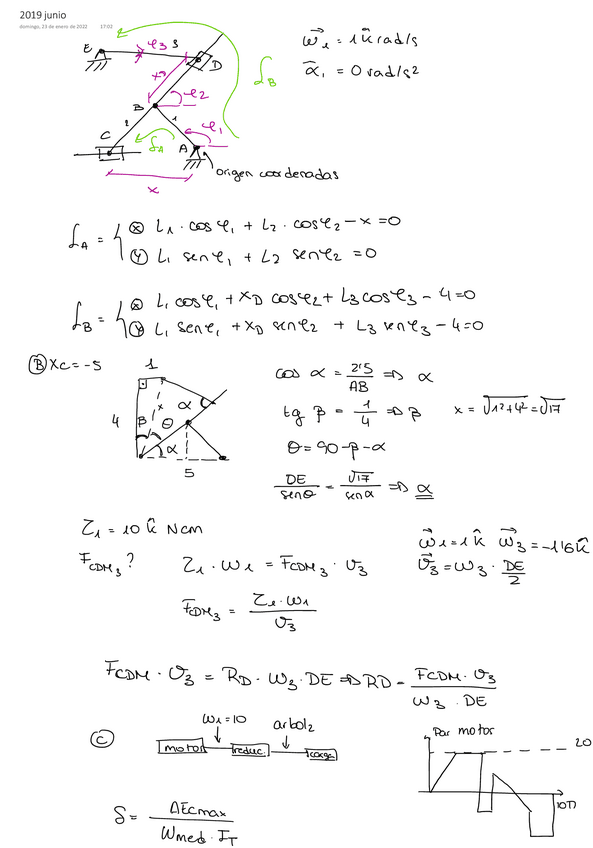 2019 junio
domingo, 23 de enero de 2022 17:02
E φ3 3 D
x_D
B φ2
2 1
C 𝓛A A φ1
x
𝓛B
origen coordenadas
ω⃗1 = 1 k̂ rad/s
ᾱ1 = 0 rad/s²
𝓛A = { ⓧ L1 · cos φ1 + L2 · cos φ2 − x = 0
ⓨ L1 sen φ1 + L2 sen φ2 = 0
𝓛B = { ⓧ L1 cos φ1 + xD cos φ2 + L3 cos φ3 − 4 = 0
ⓨ L1 sen φ1 + xD sen φ2 + L3 sen φ3 − 4 = 0
Ⓑ Xc = −5
1
4 β x θ α
α
5
cos α = 2'5 / AB ⇒ α
tg β = 1 / 4 ⇒ β x = √(1² + 4²) = √17
θ = 90 − β − α
DE / sen θ = √17 / sen α ⇒ α
τ1 = 10 k̂ Ncm
F_CDM3 ? τ1 · ω1 = F_CDM3 · v3
F_CDM3 = τ1 · ω1 / v3
ω⃗1 = 1 k̂ ω⃗3 = −1'6 k̂
v⃗3 = ω3 · DE / 2
F_CDM · v3 = R_D · ω3 · DE ⇒ RD = F_CDM · v3 / ω3 · DE
Ⓒ
ω1 = 10 arbol2
motor reduc. carga
Par motor
20
10π
δ = ΔEcmax / Wmed · I_T